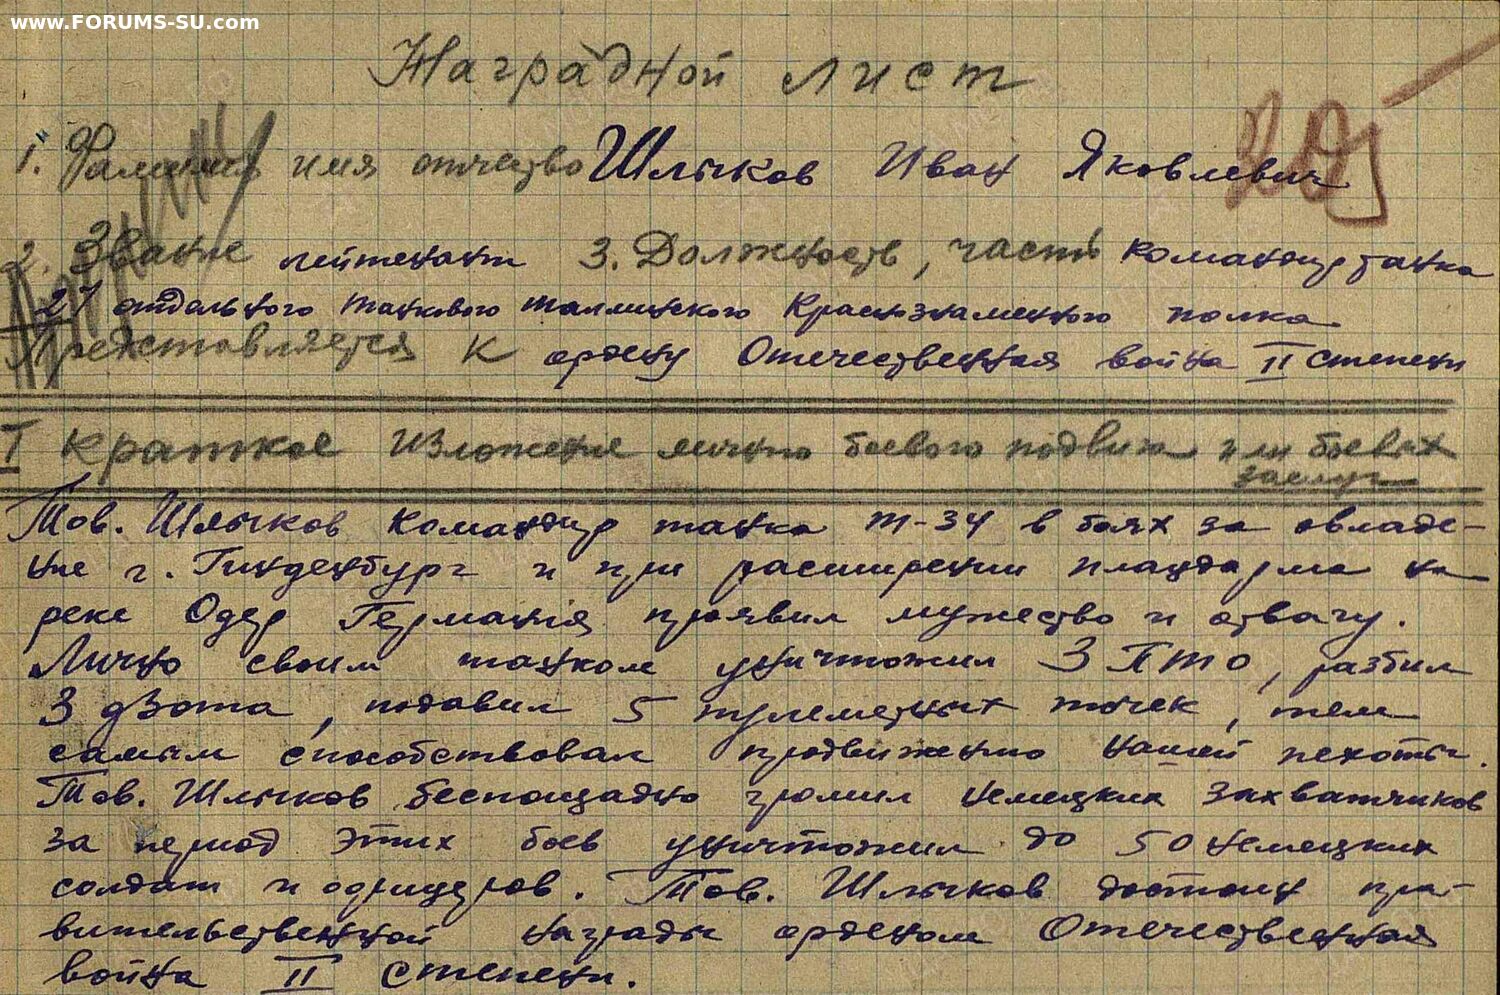 www.FORUMS-SU.com
Наградной лист
205
1. Фамилия имя отчество Шлыков Иван Яковлевич
2. Звание лейтенант 3. Должность, часть командир танка
27 отдельного танкового Таллинского Краснознаменного полка
Представляется к ордену Отечественная война II степени
I Краткое изложение лично боевого подвига или боевых
заслуг
Тов. Шлыков командир танка Т-34 в боях за овладе-
ние г. Гинденбург и при расширении плацдарма на
реке Одер Германия проявил мужество и отвагу.
Лично своим танком уничтожил 3 ПТО, разбил
3 дзота, подавил 5 пулеметных точек, тем
самым способствовал продвижению нашей пехоты.
Тов. Шлыков беспощадно громил немецких захватчиков
за период этих боев уничтожил до 50 немецких
солдат и офицеров. Тов. Шлыков достоин пра-
вительственной награды орденом Отечественная
война II степени.